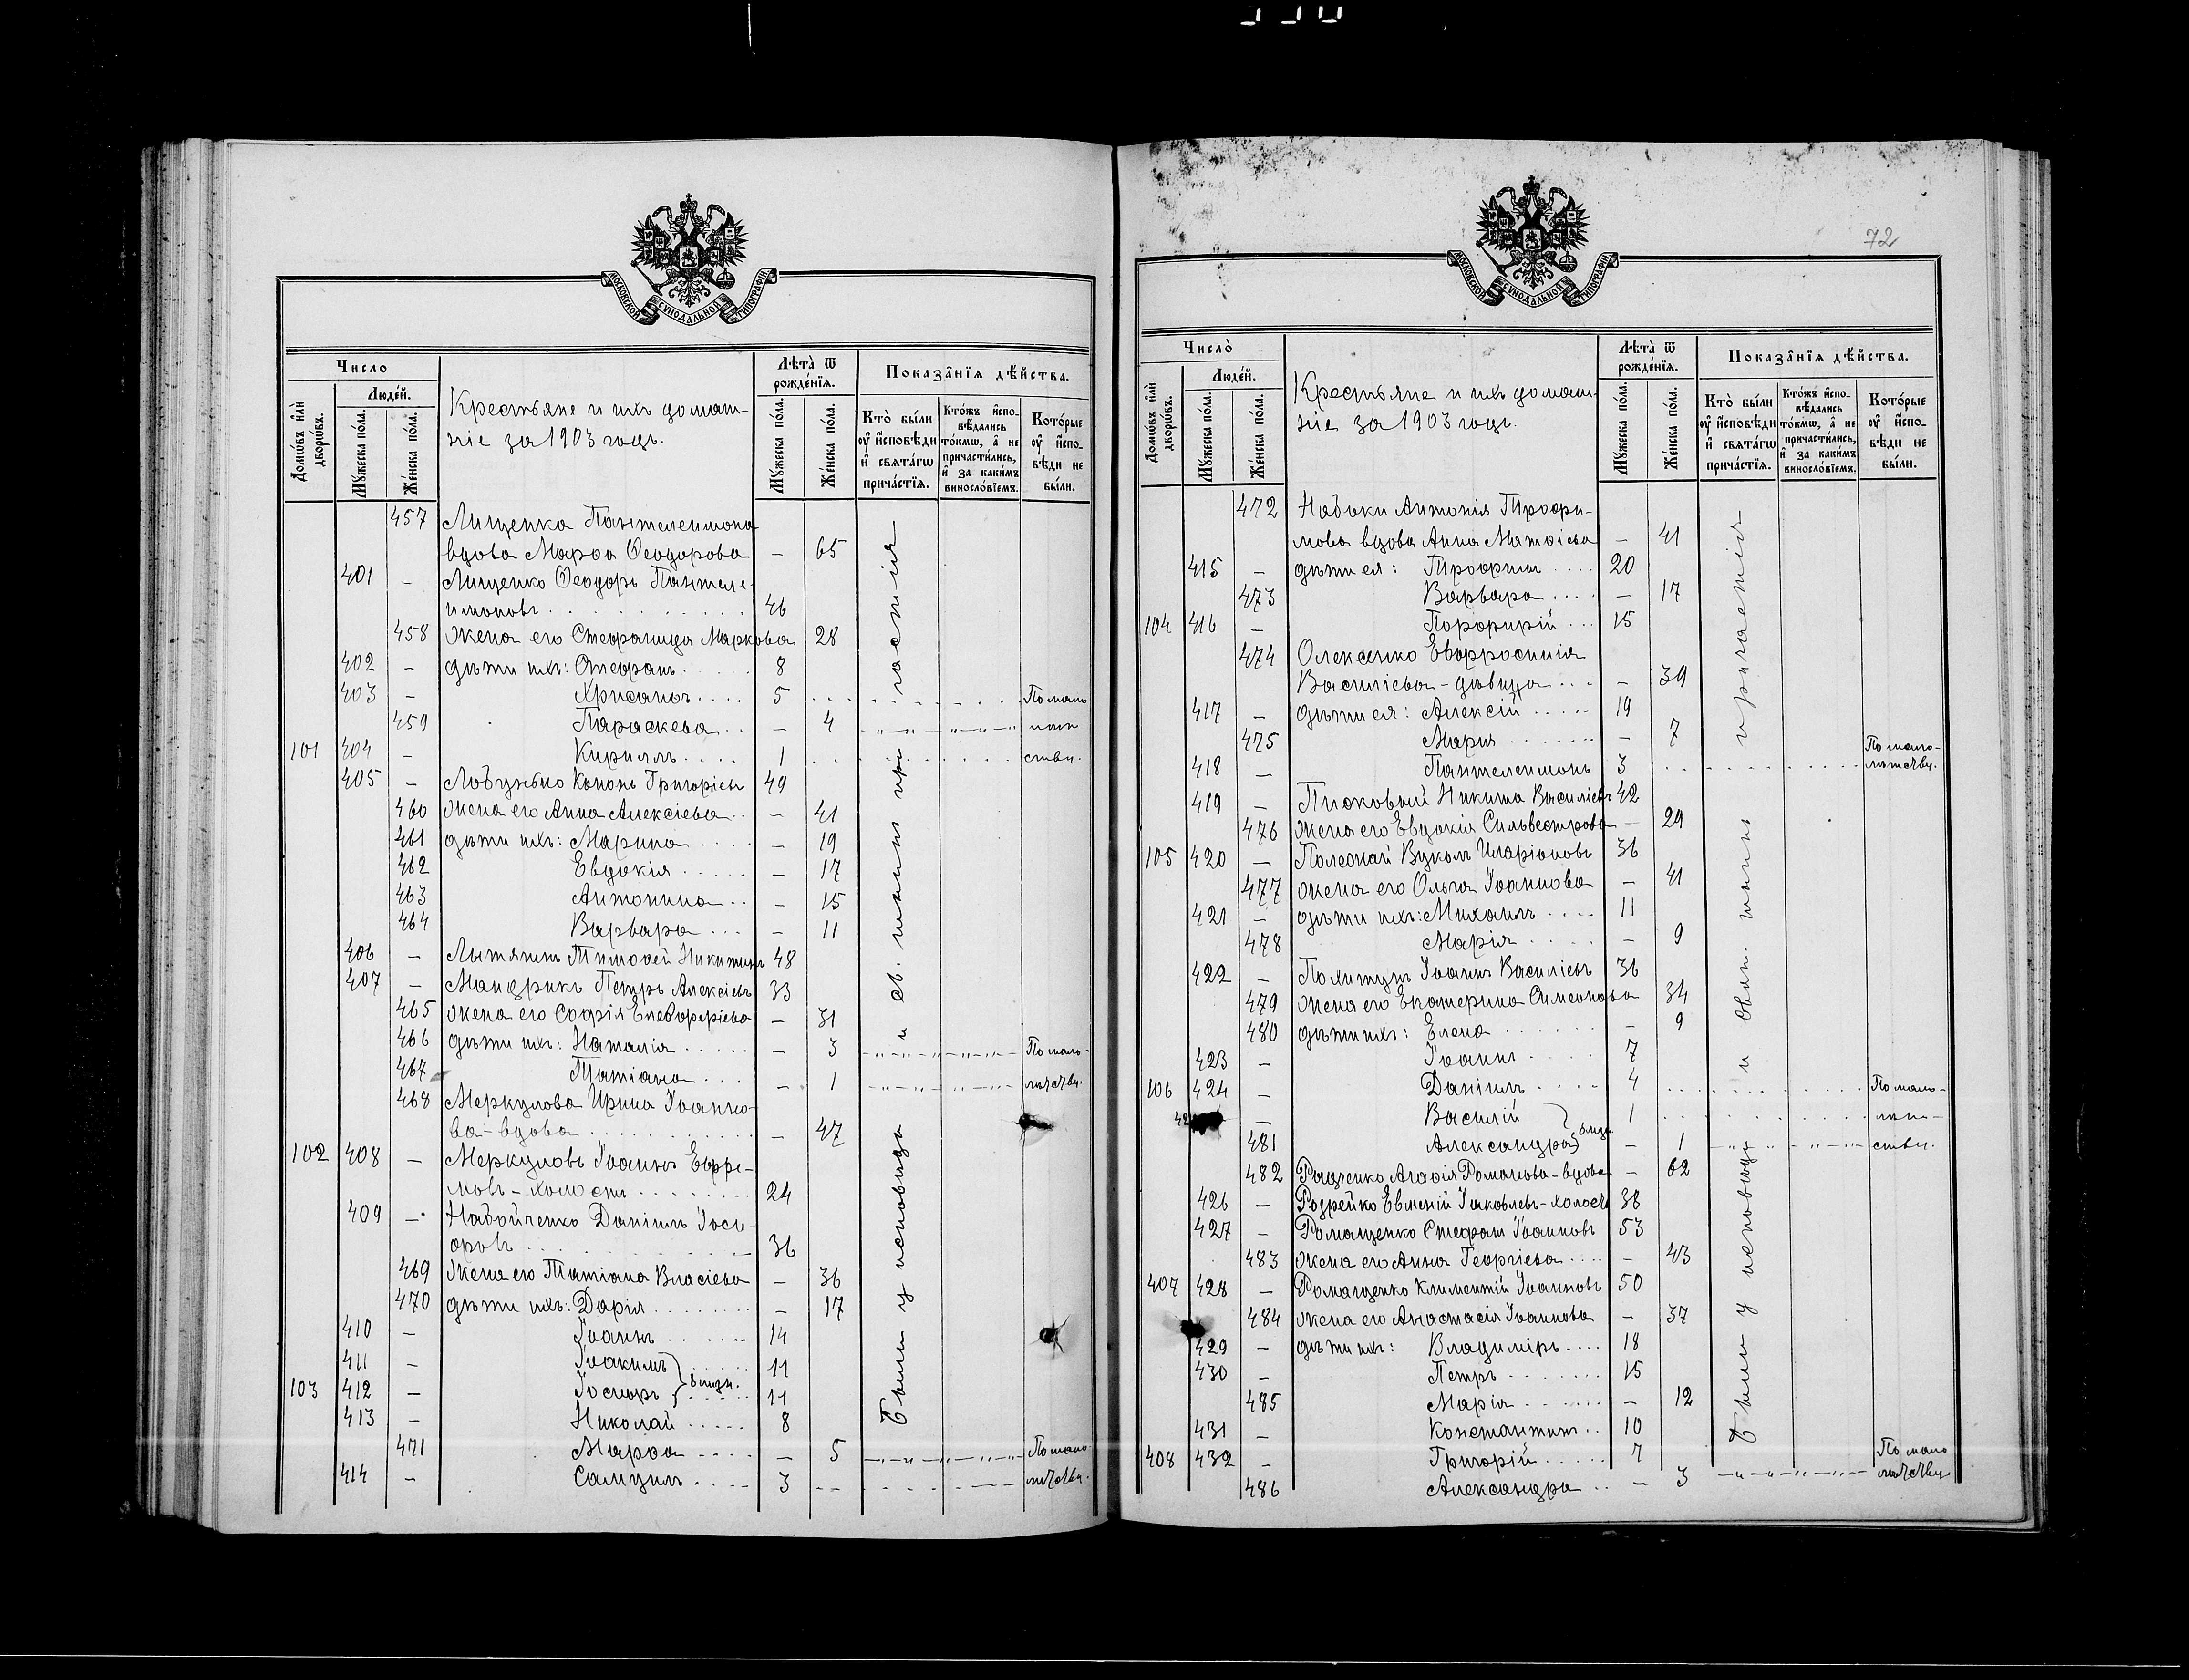 72
МОСКОВСКОЙ СѴНОДАЛЬНОЙ ТИПОГРАФІИ
Число
Домѡвъ и҆лѝ дворѡвъ.
Люде́й.
Мꙋ́жеска по́ла.
Же́нска по́ла.
Крестьяне и ихъ домаш-
ніе за 1903 годъ.
Лѣ́та ѿ рожде́нїѧ.
Мꙋ́жеска по́ла.
Же́нска по́ла.
Показа̑нїѧ дѣ́йства.
Кто̀ бы́ли ᲂу҆ и҆́сповѣди и҆ свѧта́гѡ прича́стїѧ.
Кто́жъ и҆спо-вѣ́дались то́кмѡ, а҆ не причасти́лись, и҆ за каки́мъ виносло́вїемъ.
Кото́рые ᲂу҆ и҆́спо-вѣди не бы́ли.
457 Лищенка Пантелеимона
вдова Марѳа Ѳеодорова — 65
401 — Лищенко Ѳеодоръ Пантеле-
имоновъ 46
458 жена его Стефанида Маркова 28
402 — дѣти ихъ: Стефанъ 8
403 — Хрисанѳъ 5 По мало
459 Параскева — 4 лѣт
101 404 — Кириллъ 1 ству.
405 — Кононъ Григоріевъ 49
460 жена его Анна Алексіева — 41
461 дѣти ихъ: Марина — 19
462 Евдокія — 17
463 Антонина — 15
464 Варвара — 11
406 — Литягинъ Тимоѳей Никитинъ 48
407 — Мандрикъ Петръ Алексіевъ 33
465 жена его Софія Елевѳеріева — 31
466 дѣти ихъ: Наталія — 3 По мало-
467 Татіана — 1 лѣтству.
468 Меркулова Ирина Іоанно-
ва-вдова — 47
102 408 — Меркуловъ Іоаннъ Ефре-
мовъ-холостъ 24
409 — Набойченко Даніилъ Іоси-
фовъ 36
469 жена его Татіана Власіева — 36
470 дѣти ихъ: Дарія — 17
410 — Іоаннъ 14
411 — Іоакимъ 11
близн.
103 412 — Іосифъ 11
413 — Николай 8
471 Марѳа — 5 По мало
414 — Самуилъ 3 лѣтству.
Были у исповѣди и св. таинъ причастія
МОСКОВСКОЙ СѴНОДАЛЬНОЙ ТИПОГРАФІИ
Число̀
Домѡвъ и҆лѝ дворѡвъ.
Люде́й.
Мꙋ́жеска по́ла.
Же́нска по́ла.
Крестьяне и ихъ домаш-
ніе за 1903 годъ.
Лѣ́та ѿ рожде́нїѧ.
Мꙋ́жеска по́ла.
Же́нска по́ла.
Показа̑нїѧ дѣ́йства.
Кто̀ бы́ли ᲂу҆ и҆́сповѣди и҆ свѧта́гѡ прича́стїѧ.
Кто́жъ и҆спо-вѣ́дались то́кмѡ, а҆ не причасти́лись, и҆ за каки́мъ виносло́вїемъ.
Кото́рые ᲂу҆ и҆́спо-вѣди не бы́ли.
472 Набоки Антонія Трофи-
мова вдова Анна Матѳіева — 41
415 — дѣти ея: Трофимъ 20
473 Варвара — 17
104 416 — Порфирій 15
474 Олексенко Евфросинія
Василіева-дѣвица — 39
417 — дѣти ея: Алексій 19
475 Марія — 7
418 — Пантелеимонъ 3 По мало-лѣтству.
419 — Никита Василіевъ 42
476 жена его Евдокія Сильвестрова — 29
105 420 — Вуколъ Иларіоновъ 36
477 жена его Ольга Іоаннова — 41
421 — дѣти ихъ: Михаилъ 11
478 Марія — 9
422 — Іоаннъ Василіевъ 36
479 жена его Екатерина Симеонова 34
480 дѣти ихъ: Елена — 9
423 — Іоаннъ 7
106 424 — Даніилъ 4 По мало-
42 Василій 1 лѣт-
близн.
481 Александра — 1 ству.
482 Агаѳія Романова-вдова — 62
426 — Евмений Іаковлевъ-холостъ 38
427 — Ромащенко Стефанъ Іоанновъ 53
483 жена его Анна Георгіева — 43
407 428 — Ромащенко Климентій Іоанновъ 50
484 жена его Анастасія Іоаннова — 37
429 — дѣти ихъ: Владиміръ 18
430 — Петръ 15
485 Марія — 12
431 — Константинъ 10
408 432 — Григорій 7 По мало
486 Александра — 3 лѣтству
Были у исповѣди и святн. таинъ причастія